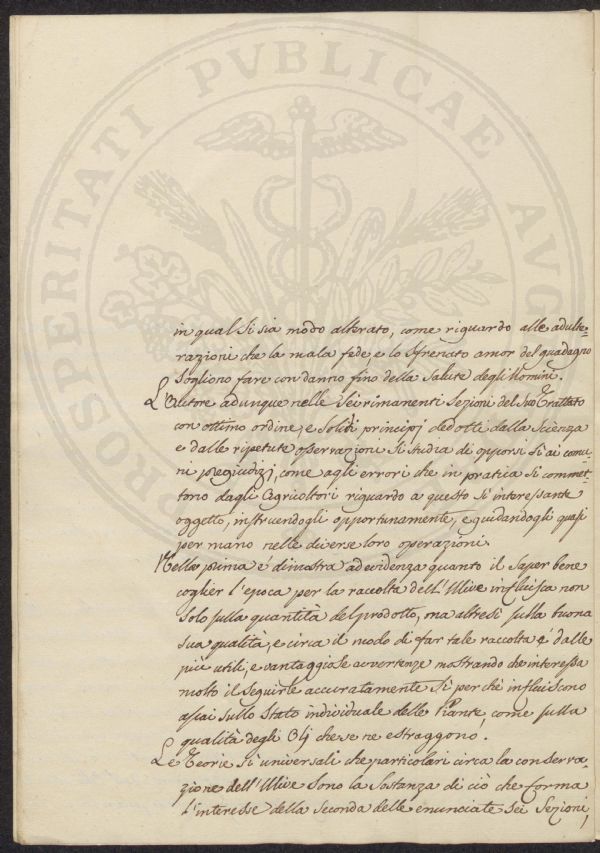 PROSPERITATI PVBLICAE AVG
in qual si sia modo alterato, come riguardo alle adulte=
razioni che la mala fede, e lo sfrenato amor del guadagno
sogliono fare con danno fino della salute degli Uomini.
L'Autore adunque nelle sei rimanenti Sezioni del Suo Trattato
con ottimo ordine, e solidi principj dedotti dalla Scienza
e dalle ripetute osservazioni si studia di opporsi sì ai comu=
ni pregiudizj, come agli errori che in pratica si commet=
tono dagli Agricoltori riguardo a questo sì interessante
oggetto, instruendogli opportunamente, e guidandogli quasi
per mano nelle diverse loro operazioni.
Nella prima é dimostra ad evidenza quanto il saper bene
coglier l'epoca per la raccolta dell'Ulive influisca non
solo sulla quantità del prodotto, ma altresì sulla buona
sua qualità, e circa il modo di far tale raccolta é dalle
più utili, e vantaggiose avvertenze mostrando che interessa
molto il seguirle accuratamente sì perchè influiscono
assai sullo stato individuale delle Piante, come sulla
qualità degli Olj che se ne estraggono.
Le Teorie sì universali che particolari circa la conserva=
zione dell'Ulive sono la sostanza di ciò che forma
l'interesse della seconda delle enunciate sei Sezioni,